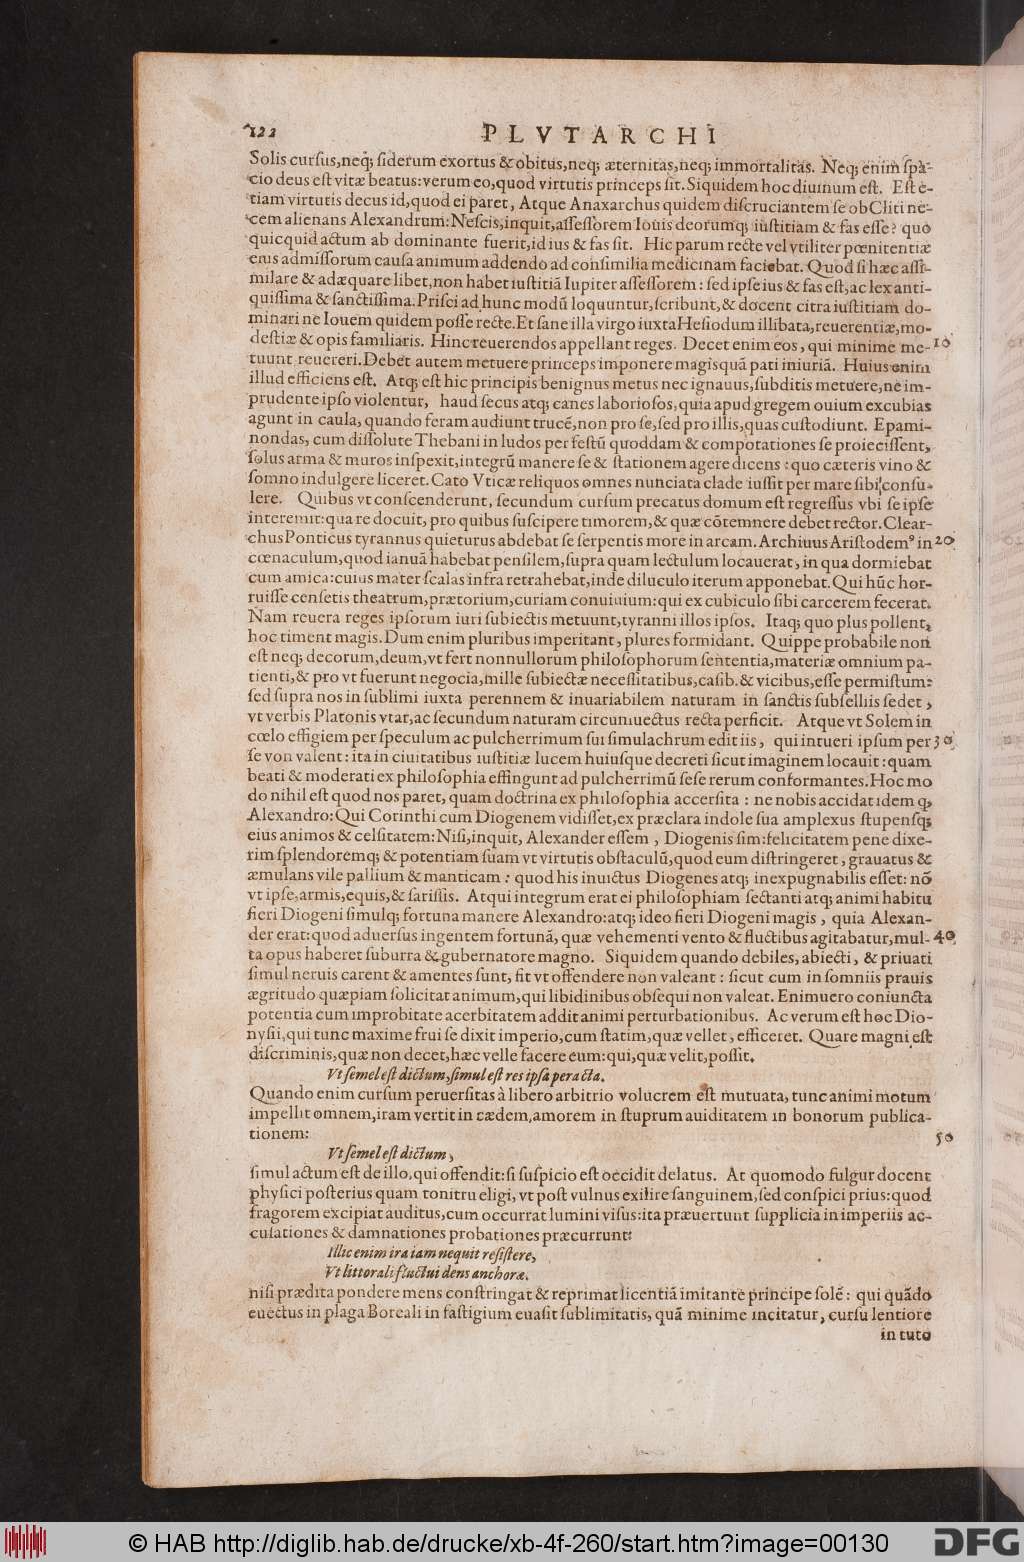 122
PLVTARCHI
Solis cursus, neq; siderum exortus & obitus, neq; æternitas, neq; immortalitas. Neq; enim spa-
cio deus est vitæ beatus: verum eo, quod virtutis princeps sit. Siquidem hoc diuinum est. Est e-
tiam virtutis decus id, quod ei paret, Atque Anaxarchus quidem discruciantem se ob Cliti ne-
cem alienans Alexandrum: Nescis, inquit, assessorem Iouis deorumq; iustitiam & fas esse? quo
quicquid actum ab dominante fuerit, id ius & fas sit. Hic parum recte vel vtiliter pœnitentiæ
eius admissorum causa animum addendo ad consimilia medicinam faciebat. Quod si hæc assi-
milare & adæquare libet, non habet iustitiā Iupiter assessorem: sed ipse ius & fas est, ac lex anti-
quissima & sanctissima. Prisci ad hunc modū loquuntur, scribunt, & docent citra iustitiam do-
minari ne Iouem quidem posse recte. Et sane illa virgo iuxta Hesiodum illibata, reuerentiæ, mo-
destiæ & opis familiaris. Hinc reuerendos appellant reges. Decet enim eos, qui minime me- 10
tuunt reuereri. Debet autem metuere princeps imponere magis quā pati iniuriā. Huius enim
illud efficiens est. Atq; est hic principis benignus metus nec ignauus, subditis metuere, ne im-
prudente ipso violentur, haud secus atq; canes laboriosos, quia apud gregem ouium excubias
agunt in caula, quando feram audiunt trucē, non pro se, sed pro illis, quas custodiunt. Epami-
nondas, cum dissolute Thebani in ludos per festū quoddam & compotationes se proiecissent,
solus arma & muros inspexit, integrū manere se & stationem agere dicens: quo cæteris vino &
somno indulgere liceret. Cato Vticæ reliquos omnes nunciata clade iussit per mare sibi consu-
lere. Quibus vt conscenderunt, secundum cursum precatus domum est regressus vbi se ipse
interemit: qua re docuit, pro quibus suscipere timorem, & quæ cōtemnere debet rector. Clear-
chus Ponticus tyrannus quieturus abdebat se serpentis more in arcam. Archiuus Aristodemꝰ in 20
cœnaculum, quod ianuā habebat pensilem, supra quam lectulum locauerat, in qua dormiebat
cum amica: cuius mater scalas infra retrahebat, inde diluculo iterum apponebat. Qui hūc hor-
ruisse censetis theatrum, prætorium, curiam conuiuium: qui ex cubiculo sibi carcerem fecerat.
Nam reuera reges ipsorum iuri subiectis metuunt, tyranni illos ipsos. Itaq; quo plus pollent,
hoc timent magis. Dum enim pluribus imperitant, plures formidant. Quippe probabile non
est neq; decorum, deum, vt fert nonnullorum philosophorum sententia, materiæ omnium pa-
tienti, & pro vt fuerunt negocia, mille subiectæ necessitatibus, casib. & vicibus, esse permistum:
sed supra nos in sublimi iuxta perennem & inuariabilem naturam in sanctis subselliis sedet,
vt verbis Platonis vtar, ac secundum naturam circumuectus recta perficit. Atque vt Solem in
cœlo effigiem per speculum ac pulcherrimum sui simulachrum edit iis, qui intueri ipsum per 30
se von valent: ita in ciuitatibus iustitiæ lucem huiusque decreti sicut imaginem locauit: quam
beati & moderati ex philosophia effingunt ad pulcherrimū sese rerum conformantes. Hoc mo
do nihil est quod nos paret, quam doctrina ex philosophia accersita: ne nobis accidat idem q,
Alexandro: Qui Corinthi cum Diogenem vidisset, ex præclara indole sua amplexus stupensq;
eius animos & celsitatem: Nisi, inquit, Alexander essem, Diogenis sim: felicitatem pene dixe-
rim splendoremq; & potentiam suam vt virtutis obstaculū, quod eum distringeret, grauatus &
æmulans vile pallium & manticam: quod his inuictus Diogenes atq; inexpugnabilis esset: nō
vt ipse, armis, equis, & sarissis. Atqui integrum erat ei philosophiam sectanti atq; animi habitu
fieri Diogeni simulq; fortuna manere Alexandro: atq; ideo fieri Diogeni magis, quia Alexan-
der erat: quod aduersus ingentem fortunā, quæ vehementi vento & fluctibus agitabatur, mul- 40
ta opus haberet suburra & gubernatore magno. Siquidem quando debiles, abiecti, & priuati
simul neruis carent & amentes sunt, fit vt offendere non valeant: sicut cum in somniis prauis
ægritudo quæpiam solicitat animum, qui libidinibus obsequi non valeat. Enimuero coniuncta
potentia cum improbitate acerbitatem addit animi perturbationibus. Ac verum est hoc Dio-
nysii, qui tunc maxime frui se dixit imperio, cum statim, quæ vellet, efficeret. Quare magni est
discriminis, quæ non decet, hæc velle facere eum: qui, quæ velit, possit.
Vt semel est dictum, simul est res ipsa peracta.
Quando enim cursum peruersitas à libero arbitrio volucrem est mutuata, tunc animi motum
impellit omnem, iram vertit in cædem, amorem in stuprum auiditatem in bonorum publica-
tionem: 50
Vt semel est dictum,
simul actum est de illo, qui offendit: si suspicio est occidit delatus. At quomodo fulgur docent
physici posterius quam tonitru eligi, vt post vulnus exilire sanguinem, sed conspici prius: quod
fragorem excipiat auditus, cum occurrat lumini visus: ita præuertunt supplicia in imperiis ac-
cusationes & damnationes probationes præcurrunt:
Illic enim ira iam nequit resistere,
Vt littorali fluctui dens anchoræ.
nisi prædita pondere mens constringat & reprimat licentiā imitante principe solē: qui quādo
euectus in plaga Boreali in fastigium euasit sublimitatis, quā minime incitatur, cursu lentiore
in tuto
© HAB http://diglib.hab.de/drucke/xb-4f-260/start.htm?image=00130
DFG